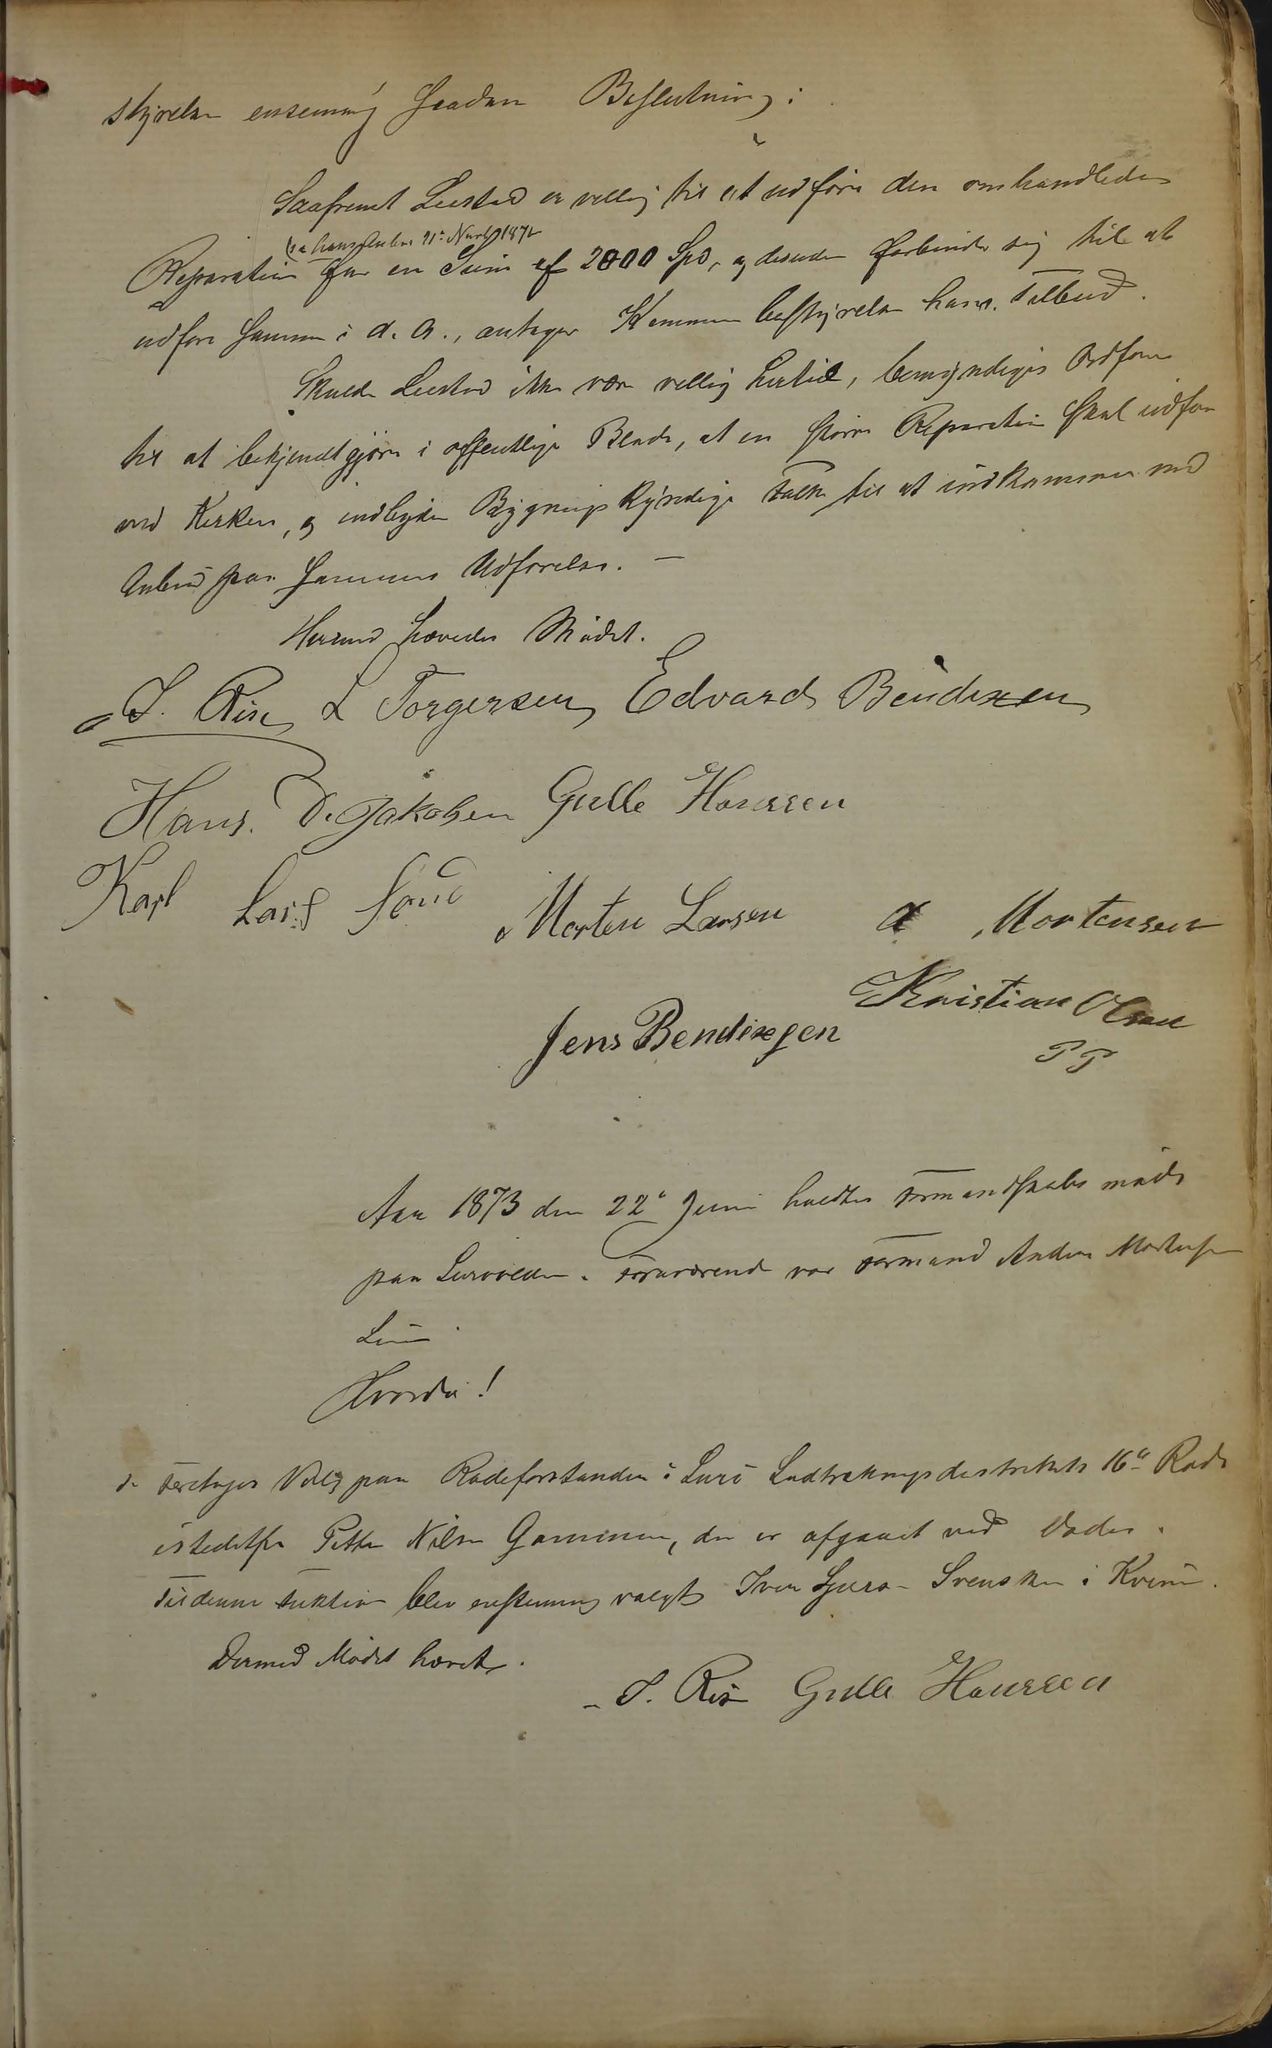 styrelsen eenstemmig saadan Beslutning:
Saafremt Leestad er villig til at udføre den omhandlede
21de Novbr 1872
Reparation for en Sum af 2000 Spd, og desuden forbinder sig til at
udføre samme i d. A., antager Kommunebestyrelsen hans Tilbud.
Skulde Leestad ikke være villig hertil, bemyndiges Ordføreren
til at bekjendtgjøre i offentlige Blade, at en større Reparation skal udføres
ved Kirken, og indbyder Bygningskyndige Folk til at indkomme med
Anbud paa sammes Udførelse. –
Hermed hævedes Mødet.
J. Riise L Torgersen Edvard Bendixen
Hans. D. Jakobsen Gulle Hanssen
Karl Lars Morten Larsen A Mortensen
Kristian Olsen
Jens Bendixsen PP
Aar 1873 den 22de Juni holdtes Formandskabsmøde
paa Lurøvolden. Fraværende var Formand Anders Mortensen
Hvorda!
d. Foretoges Valg paa Rodeforstander i Lurø Lodtrækningsdistrikts 16de Rode
istedetfor Petter Nilsen Gammen, der er afgaaet ved Døden.
Til denne Funktion blev enstemmig valgt Iver Svensken i
Dermed Mødet hævet.
J. Riis Gulle Hanssen